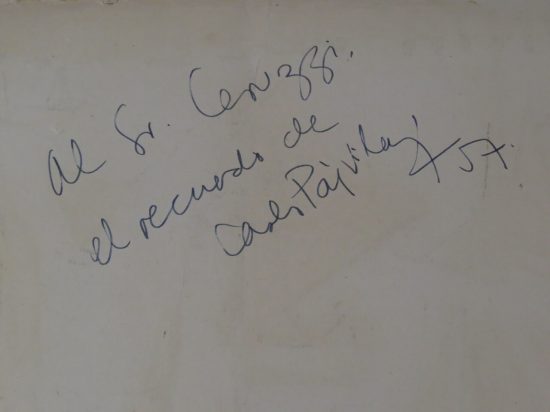 Al Sr. Ceruzzi.
el recuerdo de
Carlos Páez Vilaró 57.